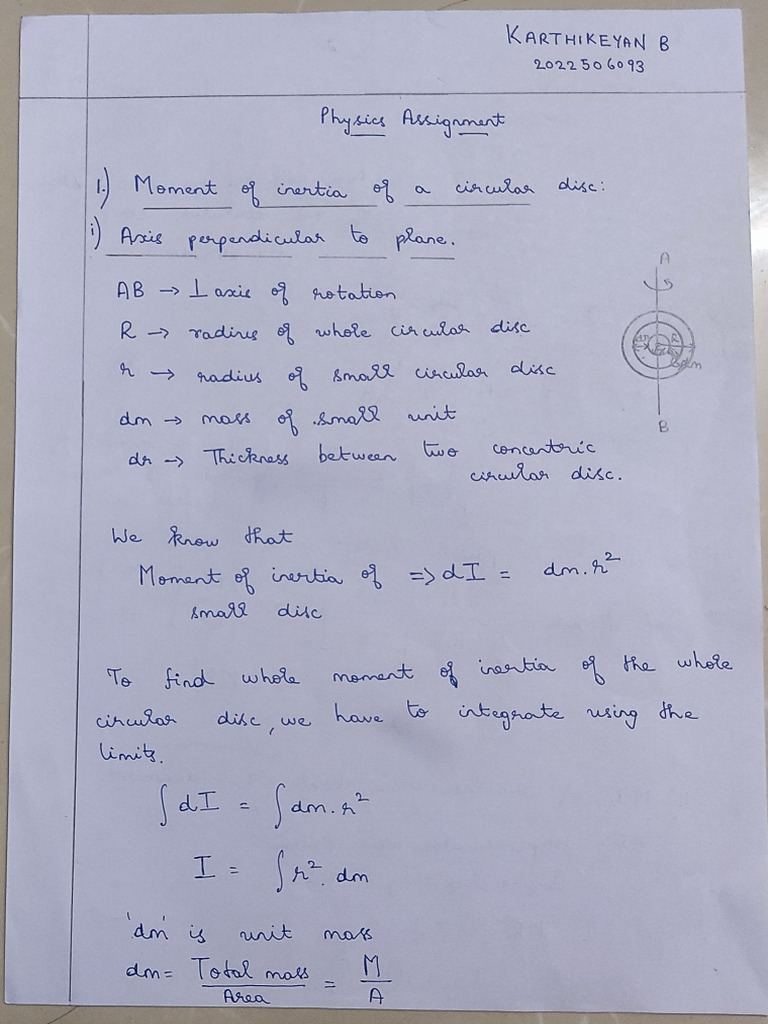 KARTHIKEYAN B
2022506093
Physics Assignment
1.) Moment of inertia of a circular disc:
i) Axis perpendicular to plane.
A
AB → ⊥ axis of rotation
R → radius of whole circular disc
R
r → radius of small circular disc
dm → mass of small unit
B
dr → Thickness between two concentric
circular disc.
We know that
Moment of inertia of => dI = dm.r²
small disc
To find whole moment of inertia of the whole
circular disc, we have to integrate using the
limits.
∫dI = ∫dm.r²
I = ∫r².dm
'dm' is unit mass
dm = Total mass / Area = M / A